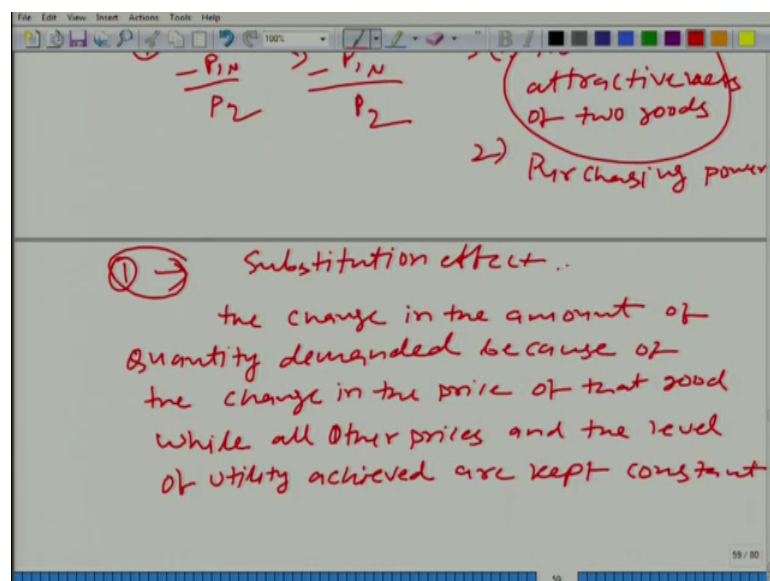 File Edit View Insert Actions Tools Help
100%
B I
- P1N
P2
- P1N
P2
attractiveness
of two goods
2) Purchasing power
① → Substitution effect..
the change in the amount of
Quantity demanded because of
the change in the price of that good
while all other prices and the level
of utility achieved are kept constant
59 / 80
59